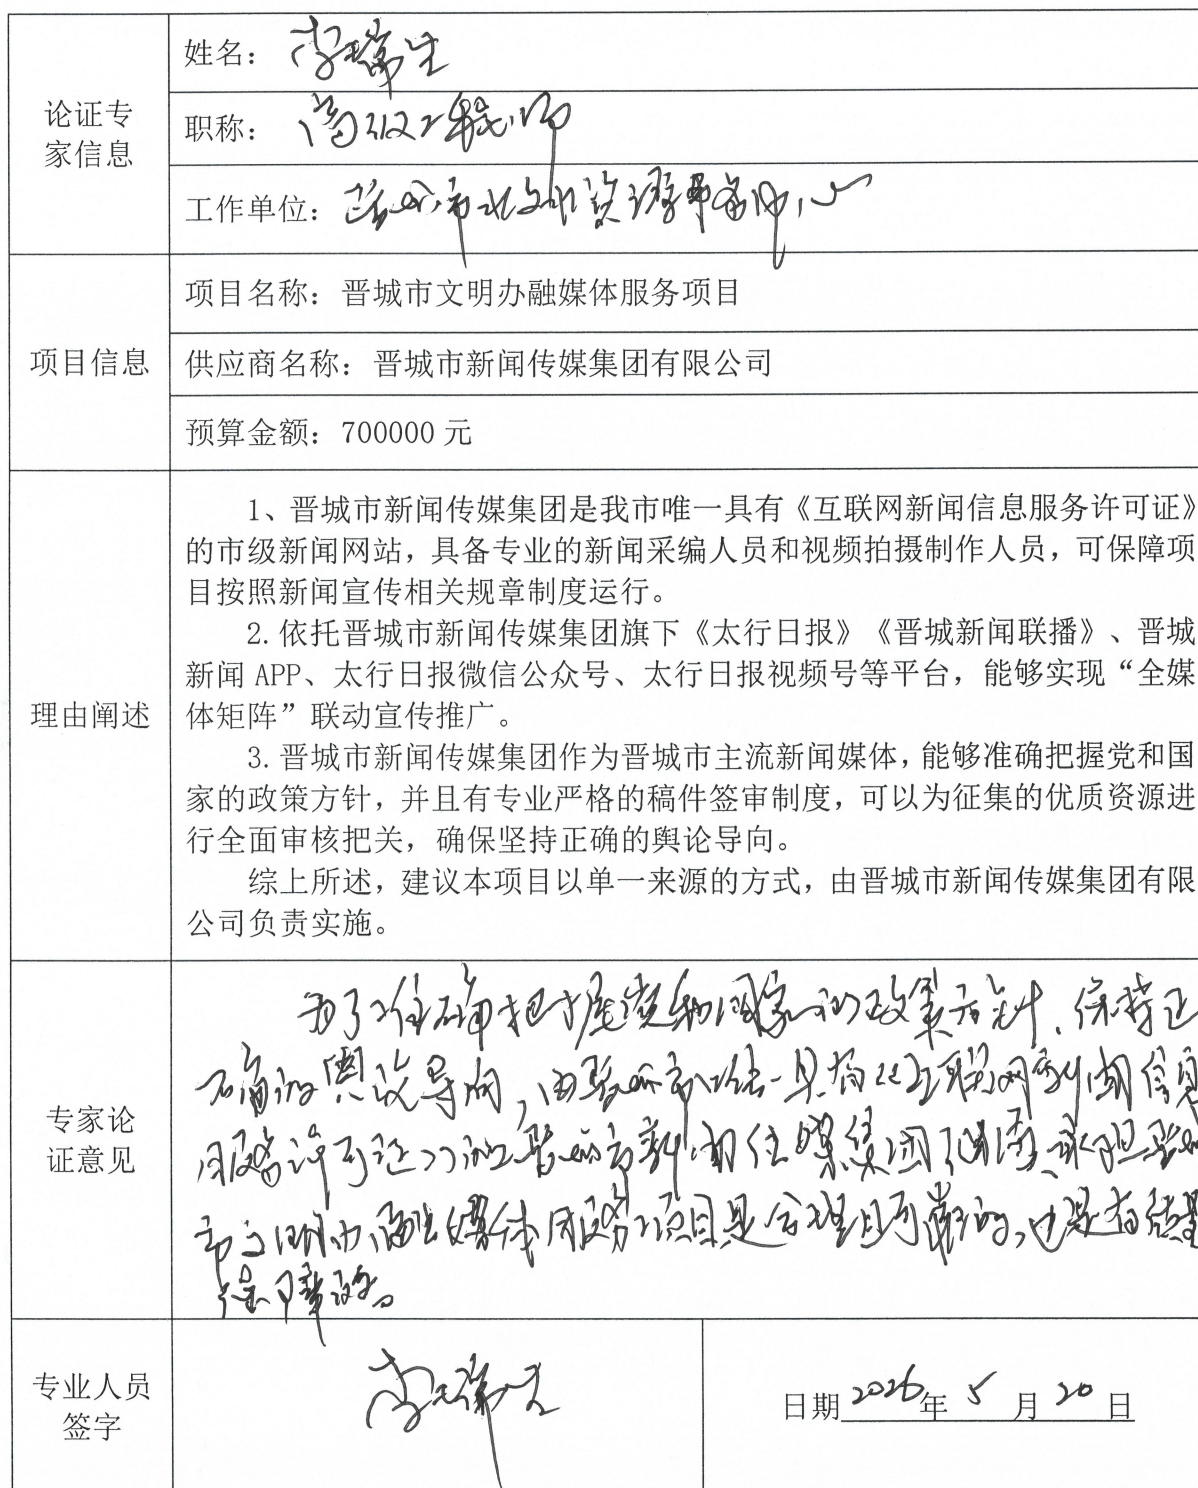 论证专
家信息
姓名：李瑞生
职称：高级工程师
工作单位：晋城市水文水资源中心
项目信息
项目名称：晋城市文明办融媒体服务项目
供应商名称：晋城市新闻传媒集团有限公司
预算金额：700000 元
理由阐述
1、晋城市新闻传媒集团是我市唯一具有《互联网新闻信息服务许可证》
的市级新闻网站，具备专业的新闻采编人员和视频拍摄制作人员，可保障项
目按照新闻宣传相关规章制度运行。
2.依托晋城市新闻传媒集团旗下《太行日报》《晋城新闻联播》、晋城
新闻 APP、太行日报微信公众号、太行日报视频号等平台，能够实现“全媒
体矩阵”联动宣传推广。
3.晋城市新闻传媒集团作为晋城市主流新闻媒体，能够准确把握党和国
家的政策方针，并且有专业严格的稿件签审制度，可以为征集的优质资源进
行全面审核把关，确保坚持正确的舆论导向。
综上所述，建议本项目以单一来源的方式，由晋城市新闻传媒集团有限
公司负责实施。
专家论
证意见
为了准确把握党和国家的政策方针、保持正
确的舆论导向，由晋城市唯一具有《互联网新闻信息
服务许可证》的晋城市新闻传媒集团承担晋城
市文明办融媒体服务项目是合理且可靠的，也是有质量
保障的。
专业人员
签字
李瑞生
日期 2026 年 5 月 20 日